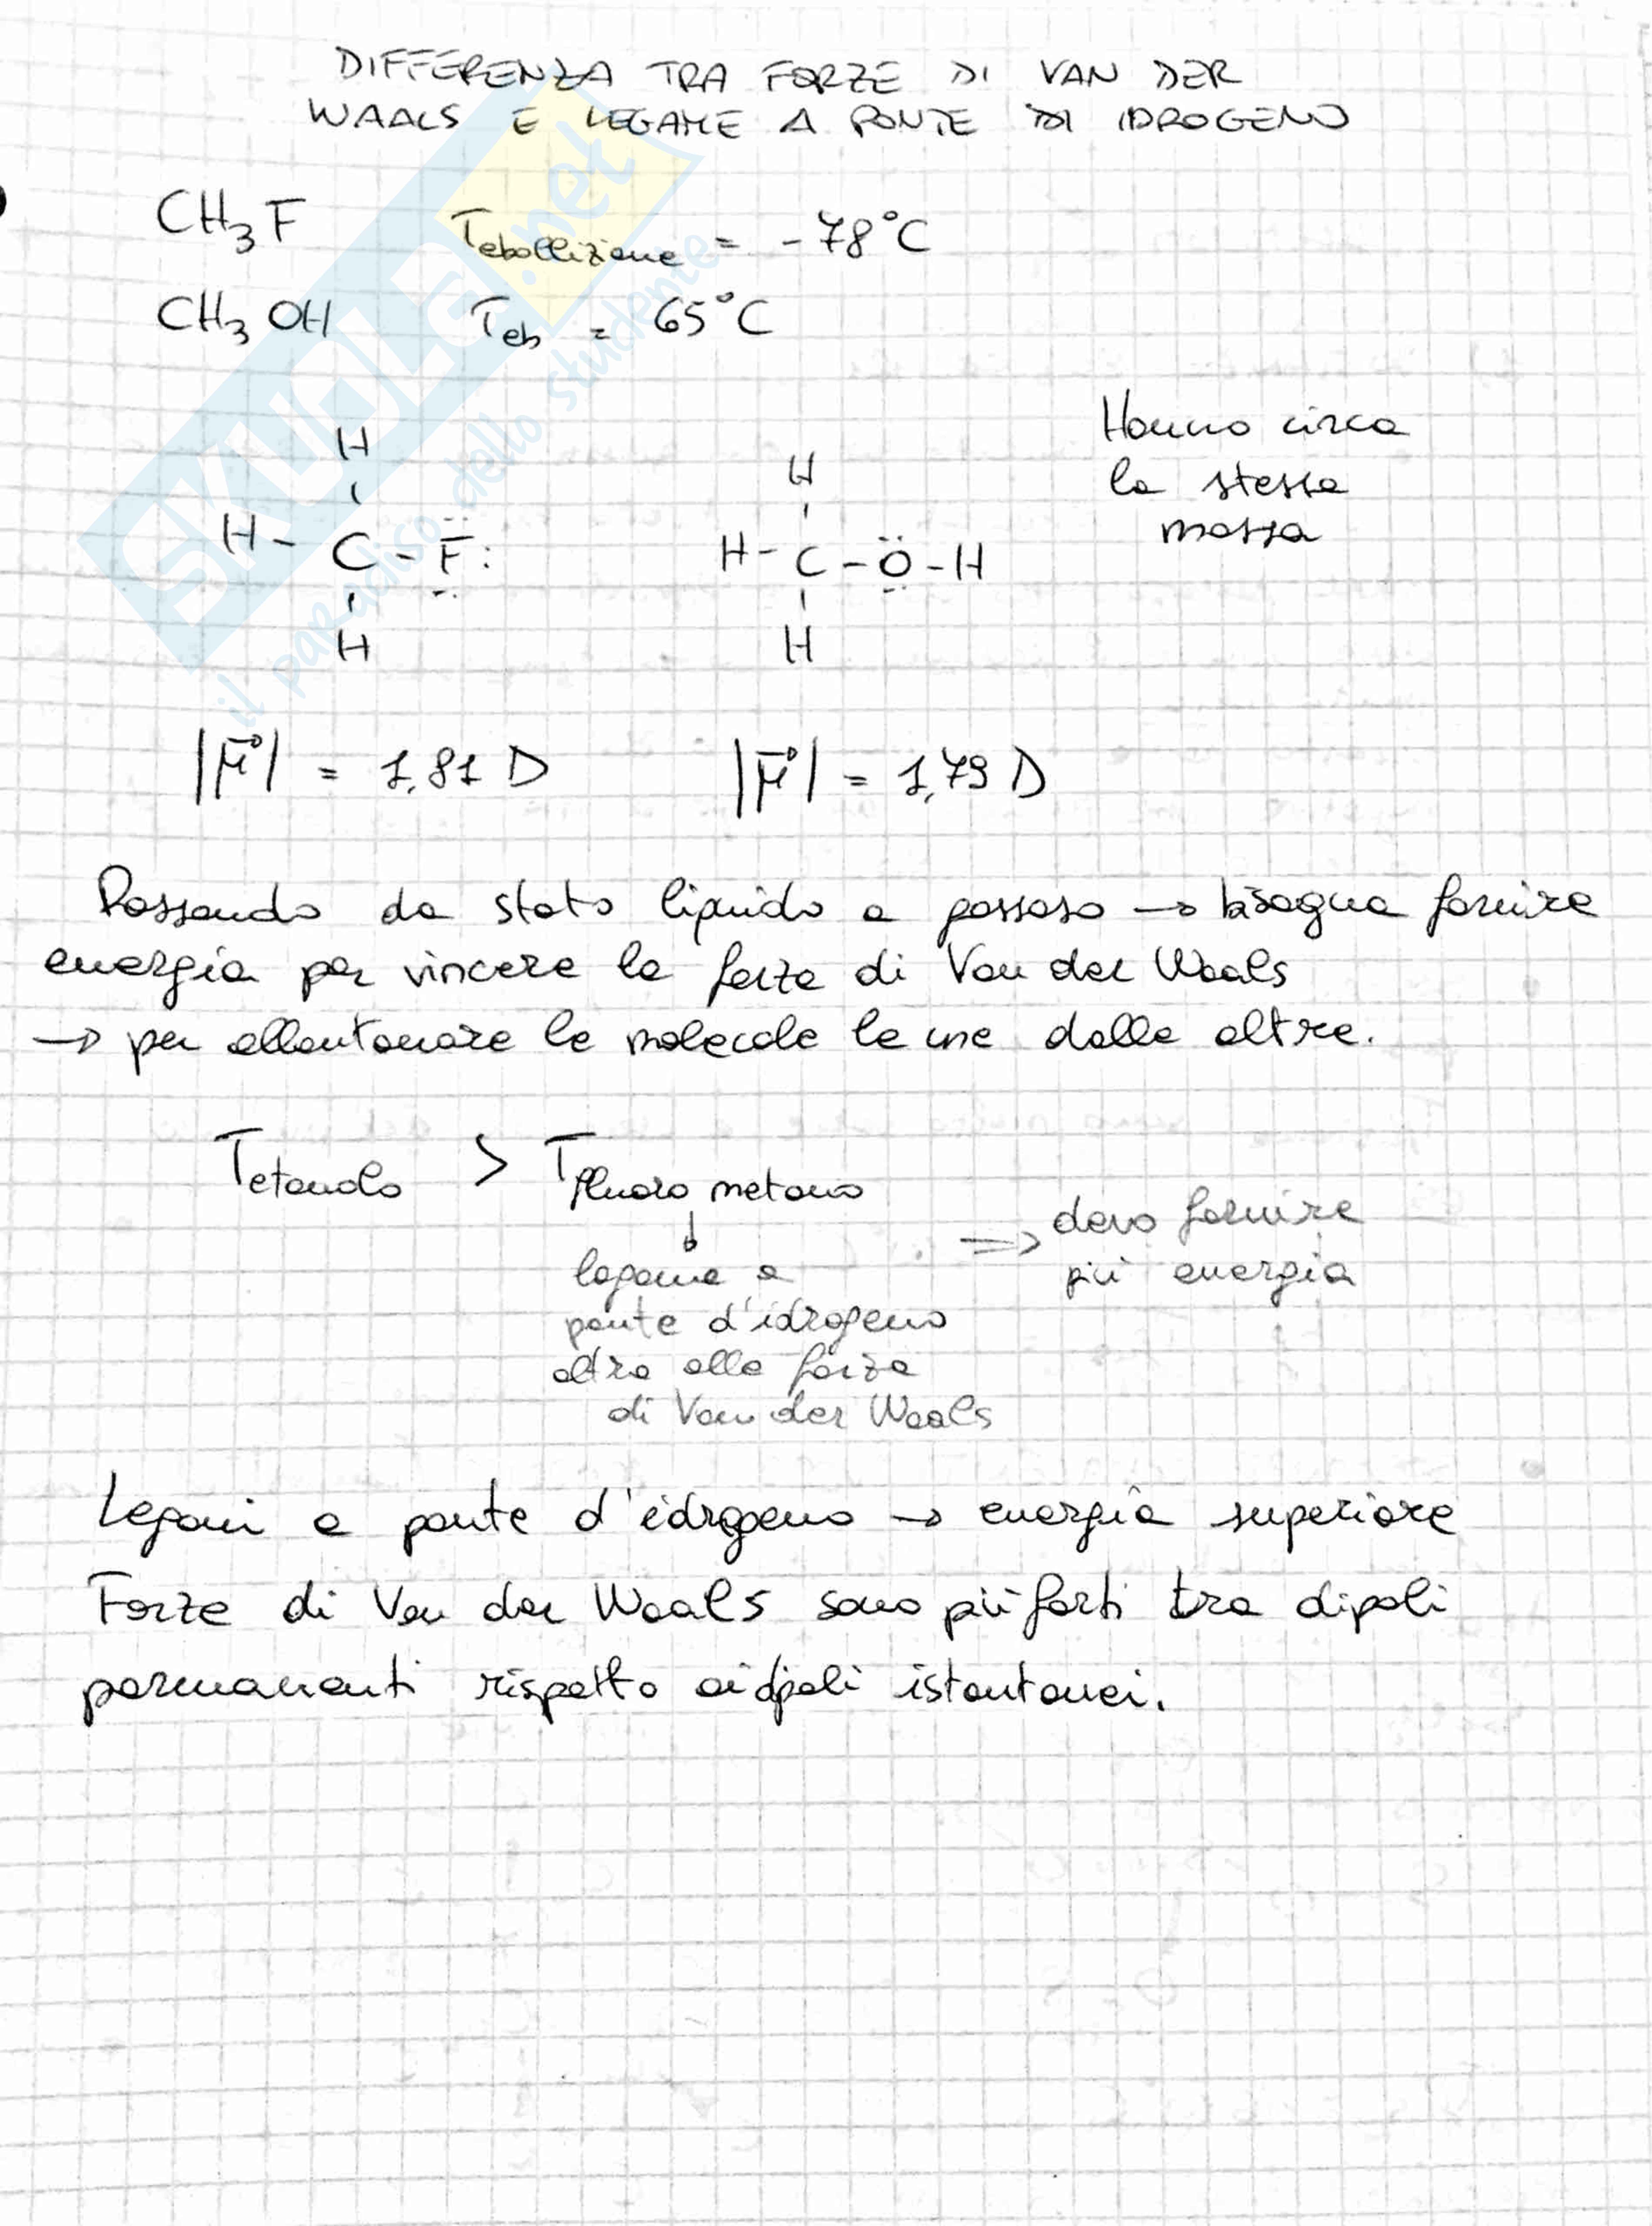 DIFFERENZA TRA FORZE DI VAN DER
WAALS E LEGAME A PONTE DI IDROGENO
CH3F Tebollizione = -78°C
CH3OH Teb = 65°C
Hanno circa
la stessa
massa
H
H - C - F:
H
H
H - C - O - H
H
|μ| = 1,81 D |μ| = 1,79 D
Passando da stato liquido a gassoso → bisogna fornire
energia per vincere la forza di Van der Waals
→ per allontanare le molecole le une dalle altre.
Tetanolo > Tfluoro metano
legame a
ponte d'idrogeno
oltre alla forza
di Van der Waals
⇒ devo fornire
più energia
Legami a ponte d'idrogeno → energia superiore
Forze di Van der Waals sono più forti tra dipoli
permanenti rispetto ai dipoli istantanei.
SKUOLA.net
il paradiso dello studente